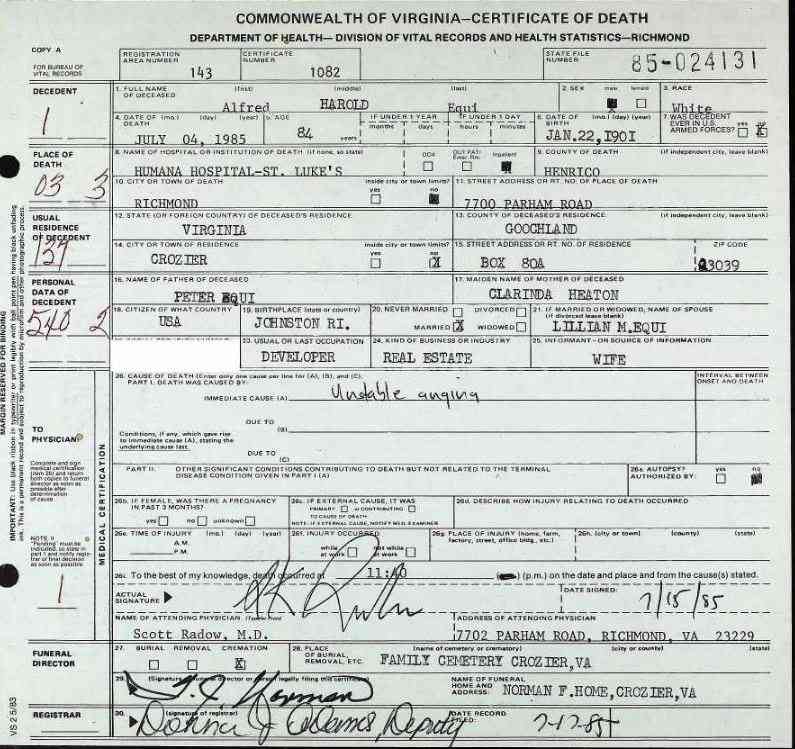 COMMONWEALTH OF VIRGINIA—CERTIFICATE OF DEATH
DEPARTMENT OF HEALTH— DIVISION OF VITAL RECORDS AND HEALTH STATISTICS—RICHMOND
COPY A
FOR BUREAU OF VITAL RECORDS
REGISTRATION AREA NUMBER 143
CERTIFICATE NUMBER 1082
STATE FILE NUMBER 85-024131
DECEDENT
1
1. FULL NAME OF DECEASED (first) (middle) (last)
Alfred HAROLD Equi
2. SEX male female
3. RACE
White
4. DATE OF DEATH (mo.) (day) (year)
JULY 04, 1985
5. AGE 84 years
IF UNDER 1 YEAR months days
IF UNDER 1 DAY hours minutes
6. DATE OF BIRTH (mo.) (day) (year)
JAN.22,1901
7. WAS DECEDENT EVER IN U.S. ARMED FORCES? yes no X
PLACE OF DEATH
03 3
8. NAME OF HOSPITAL OR INSTITUTION OF DEATH (if none, so state)
HUMANA HOSPITAL-ST. LUKE'S
DOA OUT PAT/ Emer. Rm. Inpatient
9. COUNTY OF DEATH (if independent city, leave blank)
HENRICO
10. CITY OR TOWN OF DEATH inside city or town limits? yes no
RICHMOND
11. STREET ADDRESS OR RT. NO. OF PLACE OF DEATH
7700 PARHAM ROAD
USUAL RESIDENCE OF DECEDENT
137
12. STATE (OR FOREIGN COUNTRY) OF DECEASED'S RESIDENCE
VIRGINIA
13. COUNTY OF DECEASED'S RESIDENCE (if independent city, leave blank)
GOOCHLAND
14. CITY OR TOWN OF RESIDENCE inside city or town limits? yes no X
CROZIER
15. STREET ADDRESS OR RT. NO. OF RESIDENCE ZIP CODE
BOX 80A 23039
PERSONAL DATA OF DECEDENT
540 2
16. NAME OF FATHER OF DECEASED
PETER EQUI
17. MAIDEN NAME OF MOTHER OF DECEASED
CLARINDA HEATON
18. CITIZEN OF WHAT COUNTRY
USA
19. BIRTHPLACE (state or country)
JOHNSTON RI.
20. NEVER MARRIED DIVORCED
MARRIED X WIDOWED
21. IF MARRIED OR WIDOWED, NAME OF SPOUSE (if divorced leave blank)
LILLIAN M.EQUI
23. USUAL OR LAST OCCUPATION
DEVELOPER
24. KIND OF BUSINESS OR INDUSTRY
REAL ESTATE
25. INFORMANT - OR SOURCE OF INFORMATION
WIFE
MARGIN RESERVED FOR BINDING
IMPORTANT: Use black ribbon in typewriter or print legibly with ball point pen having black unfading ink. This is a permanent record and subject to reproduction by microfilm and other photographic process.
TO PHYSICIAN
Complete and sign medical certification (item 26) and return both copies to funeral director as soon as possible after determination of cause
MEDICAL CERTIFICATION
26. CAUSE OF DEATH (Enter only one cause per line for (A), (B), and (C).
PART I. DEATH WAS CAUSED BY:
INTERVAL BETWEEN ONSET AND DEATH
IMMEDIATE CAUSE (A) Unstable angina
DUE TO (B)
Conditions, if any, which gave rise to immediate cause (A), stating the underlying cause last.
DUE TO (C)
PART II. OTHER SIGNIFICANT CONDITIONS CONTRIBUTING TO DEATH BUT NOT RELATED TO THE TERMINAL DISEASE CONDITION GIVEN IN PART I (A)
26a. AUTOPSY? AUTHORIZED BY: yes no
26b. IF FEMALE, WAS THERE A PREGNANCY IN PAST 3 MONTHS?
yes no unknown
26c. IF EXTERNAL CAUSE, IT WAS
PRIMARY or CONTRIBUTING
TO CAUSE OF DEATH
NOTE: IF EXTERNAL CAUSE, NOTIFY MED. EXAMINER
26d. DESCRIBE HOW INJURY RELATED TO DEATH OCCURRED
NOTE II
"Pending" must be indicated, so state in part 1 and notify registrar of final decision as soon as possible
1
26e. TIME OF INJURY (mo.) (day) (year)
A.M.
P.M.
26f. INJURY OCCURRED
while at work not while at work
26g. PLACE OF INJURY (home, farm, factory, street, office bldg., etc.)
26h. (city or town) (county) (state)
26i. To the best of my knowledge, death occurred at 11:40 (p.m.) on the date and place and from the cause(s) stated.
ACTUAL SIGNATURE
DATE SIGNED: 7/15/85
NAME OF ATTENDING PHYSICIAN (Type or Print)
Scott Radow, M.D.
ADDRESS OF ATTENDING PHYSICIAN
7702 PARHAM ROAD, RICHMOND, VA 23229
FUNERAL DIRECTOR
27. BURIAL REMOVAL CREMATION X
28. PLACE OF BURIAL, REMOVAL, ETC. (name of cemetery or crematory) (city or county) (state)
FAMILY CEMETERY CROZIER,VA
29. (Signature of funeral director or person legally filing this certificate)
NAME OF FUNERAL HOME AND ADDRESS: NORMAN F.HOME,CROZIER,VA
REGISTRAR
30. (signature of registrar)
Donna J Adams, Deputy
DATE RECORD FILED: 7-17-85
VS 2 5/83